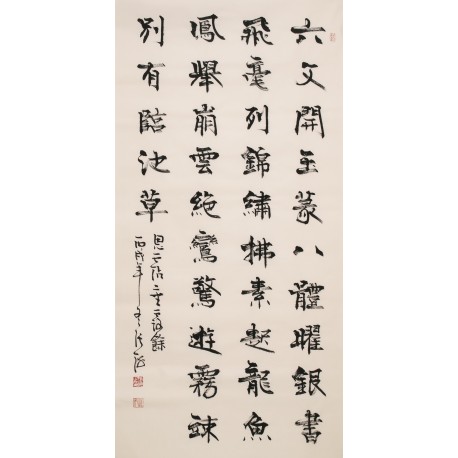 六文開玉篆八體曜銀書
飛毫列錦繡拂素起龍魚
鳳舉崩雲絕鸞驚遊霧疎
別有臨池草
恩沾垂露餘
丙戌年